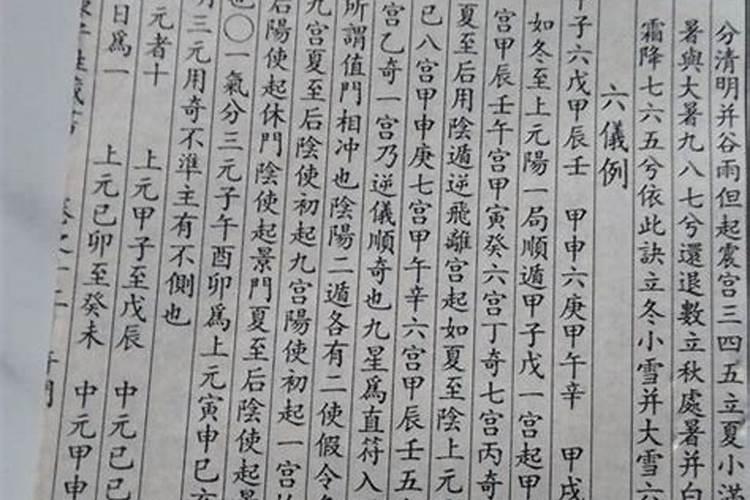 分清明并谷雨但起震宮三四五立夏小滿
暑與大暑九八七兮還退數立秋處暑并白
霜降七六五兮依此訣立冬小雪并大雪六
六儀例
甲子六戊甲辰壬 甲申六庚甲午辛 甲戌
如冬至上元陽一局順遁甲子戊一宮起甲
宮甲辰壬午宮甲寅癸六宮丁奇七宮丙奇
夏至后用陰遁逆飛離宮起如夏至陰上元
己八宮甲申庚七宮甲午辛六宮甲辰壬五
宮乙奇一宮乃逆儀順奇也九星為直符入
所謂值門相冲也陰陽二遁各有二使假令
九宮夏至后陰使初起九宮陽使初起一宮
后陽使起休門陰使起景門夏至后陰使起景
也〇一氣分三元子午酉卯為上元寅申巳亥
三元用奇不準主有不側也
元者十 上元甲子至戊辰 中元己巳
日為一 上元己卯至癸未 中元甲申